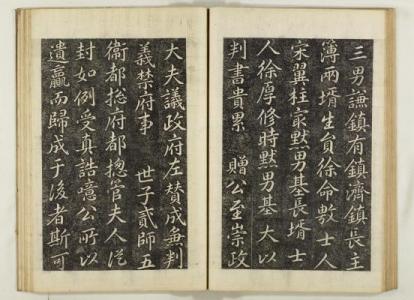 三男謙鎮有鎮濟鎮長主
簿兩壻生負徐命敷士人
宋翼柱家默男其長壻士
人徐厚修時默男基大以
判書貴累 贈公至崇政
大夫議政府左贊成兼判
義禁府事 世子貳師五
衛都摠府都摠管夫人從
封如例受真誥噫公所以
遺羸而歸成于後者斯可